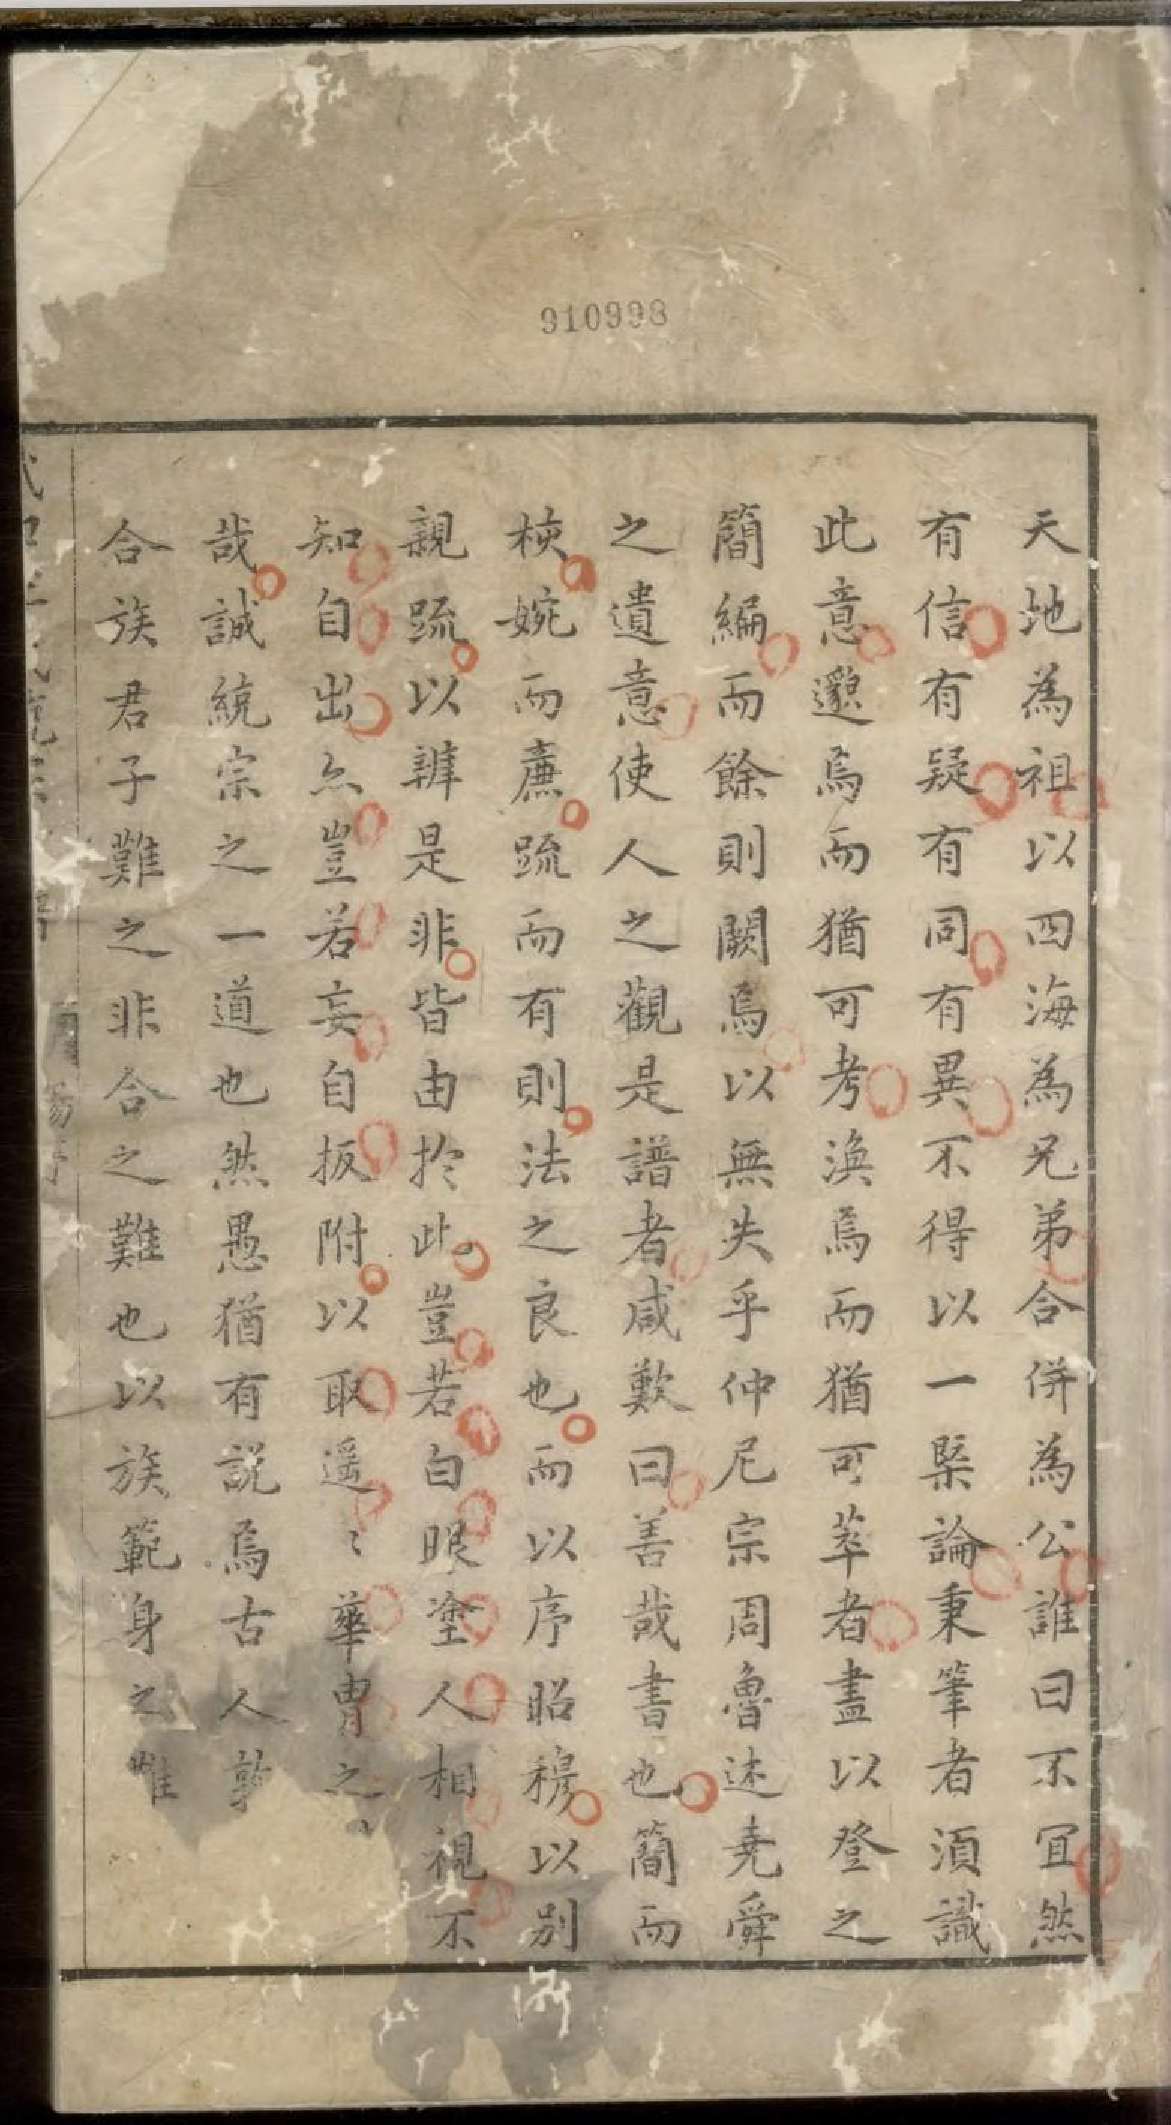 910998
天地為祖以四海為兄弟合併為公誰曰不宜然
有信有疑有同有異不得以一槩論秉筆者須識
此意邈焉而猶可考渙焉而猶可萃者盡以登之
簡編而餘則闕焉以無失乎仲尼宗周魯述堯舜
之遺意使人之觀是譜者咸歎曰善哉書也簡而
核婉而廉疏而有則法之良也而以序昭穆以別
親疏以辨是非皆由於此豈若白眼塗人相視不
知自出亦豈若妄自扳附以取遥〻華胄之
哉誠統宗之一道也然愚猶有説焉古人敦
合族君子難之非合之難也以族範身之難